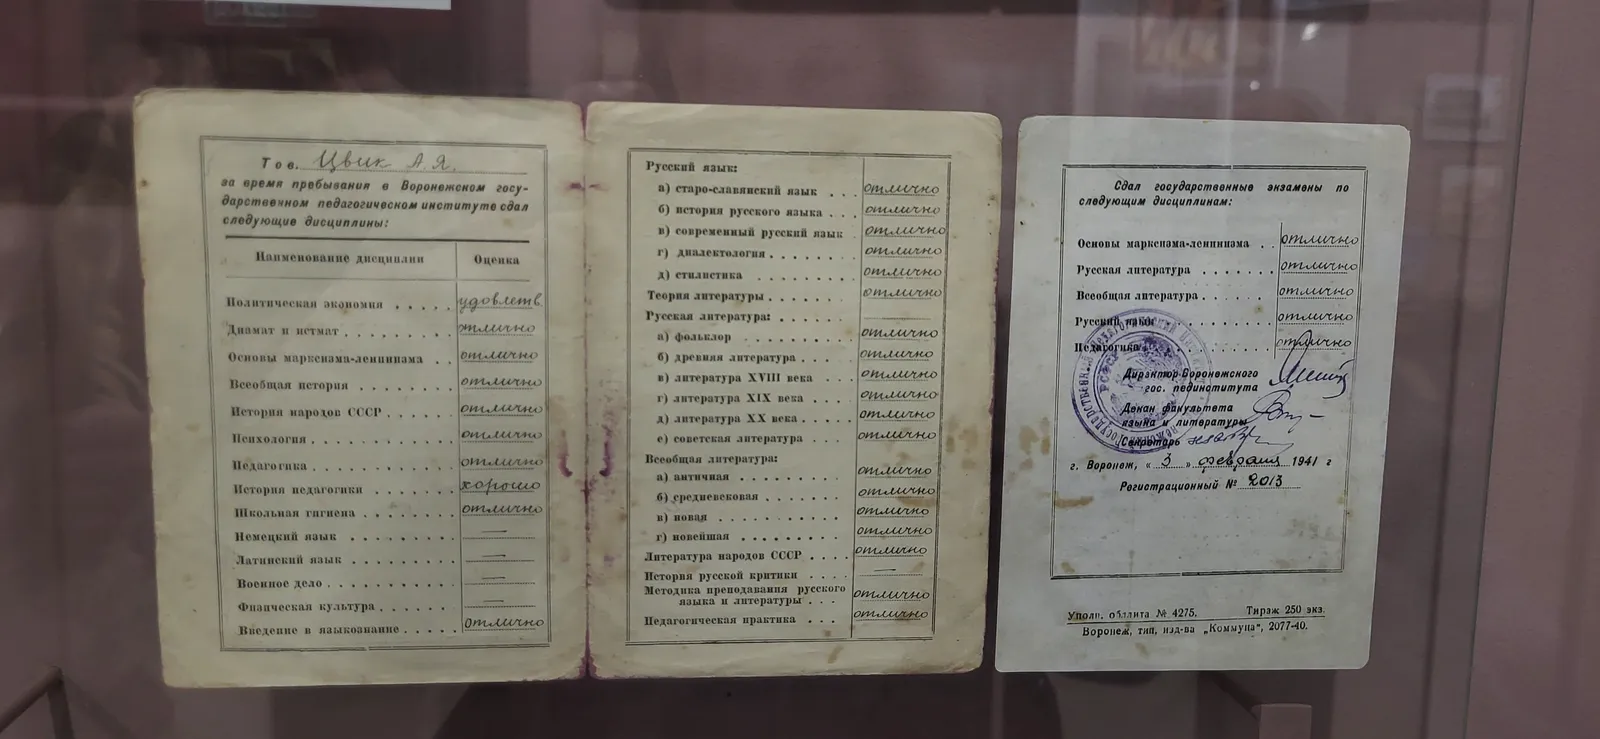 Тов. Цвик А.Я.
за время пребывания в Воронежском госу-
дарственном педагогическом институте сдал
следующие дисциплины:
Наименование дисциплин Оценка
Политическая экономия ..... удовлетв
Диамат и истмат ......... отлично
Основы марксизма-ленинизма .. отлично
Всеобщая история ........ отлично
История народов СССР ...... отлично
Психология ............ отлично
Педагогика ............ отлично
История педагогики ....... хорошо
Школьная гигиена ........ отлично
Немецкий язык ......... —
Латинский язык ......... —
Военное дело ........... —
Физическая культура ...... —
Введение в языкознание ..... отлично
Русский язык:
а) старо-славянский язык ... отлично
б) история русского языка ... отлично
в) современный русский язык отлично
г) диалектология ........ отлично
д) стилистика ........ отлично
Теория литературы ....... отлично
Русская литература: ...... —
а) фольклор ......... отлично
б) древняя литература .... отлично
в) литература XVIII века ... отлично
г) литература XIX века .... отлично
д) литература XX века ..... отлично
е) советская литература ... отлично
Всеобщая литература:
а) античная ......... отлично
б) средневековая ....... отлично
в) новая ........... отлично
г) новейшая ......... отлично
Литература народов СССР .... отлично
История русской критики .... —
Методика преподавания русского
языка и литературы ... отлично
Педагогическая практика ... отлично
Сдал государственные экзамены по
следующим дисциплинам:
Основы марксизма-ленинизма .. отлично
Русская литература ...... отлично
Всеобщая литература ...... отлично
Русский язык ........ отлично
Педагогика ........ отлично
Директор Воронежского
гос. пединститута
Декан факультета
языка и литературы
Секретарь
г. Воронеж, „3" февраля 1941 г
Регистрационный № 2013
РСФСР
Уполн. обллита № 4275. Тираж 250 экз.
Воронеж, тип, изд-ва „Коммуна", 2077-40.